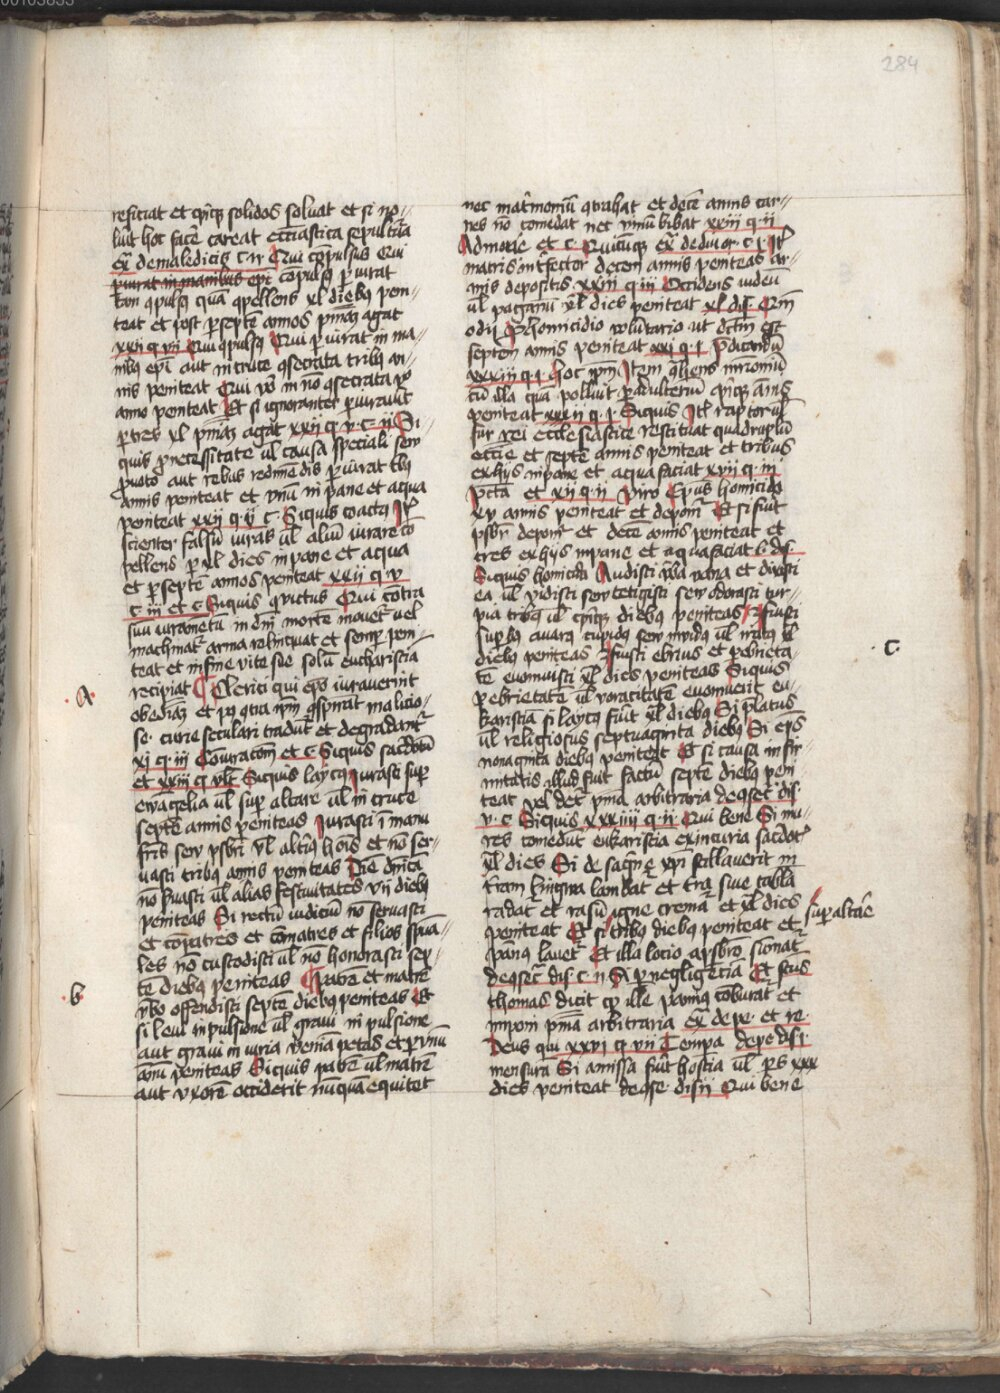 284
reficiat et quinque solidos soluat et si no//
luit hoc facere careat ecclesiastica sepultura
ex de maledicis c. Qui compulsus Qui
periurat in manibus epi compulsus periurat
tam qpulsus quam qpellens xl diebus peni
teat et post septem annos pniam agat
xxii q vii Qui qpulsus Qui periurat in ma//
nibus epi aut in cruce qsecrata tribus an//
nis peniteat Qui vo in no qsecrata pro
anno peniteat Et si ignoranter periurauit
per tres xl pniam agat xxii q v c ii Si//
quis pro necessitate ul causa speciali seu
pro voto aut rebus redimendis periurat tribus
annis peniteat et vnum in pane et aqua
peniteat xxii q v c Siquis coactus It
scienter falsum iuras ul alium iurare co
pellens per xl dies in pane et aqua
et per septem annos peniteat xxii q v
c iii et c Siquis quictus Qui contra
suum iuramentum in dni mortem mouetur uel
machinatur arma relinquat et semper peni//
teat et in fine vite sue solum eucharistia
recipiat Clerici qui epo iurauerint
.A.
obediam et post contra ipm qspirant malicio//
se curie seculari tradunt et degradantur
xi q iii Coniuratom et c Siquis sacdotum
et xxiii q vlt Siquis laycus Iurasti super
ewangelia ul super altare ul in cruce
septem annis peniteas Iurasti in manu
fris seu psbri vl alterius hois et non ser//
uasti tribus annis peniteas Diem dnicam
no seruasti ul alias festiuitates vii diebus
peniteas Si rectum iudicium no seruasti
et conpatres et comatres et filios spua//
les no custodisti ul no honorasti sep//
tem diebus peniteas Patrem et matrem
.b.
verbo offendisti septem diebus peniteas Et
si leui inpulsione ul graui inpulsione
aut graui iniuria veniam petas et per vnum
annum peniteas Siquis patrem ul matrem
aut vxorem occiderit nuquam equitet
nec matrimonium qtrahat et decem annis car//
nes no comedat nec vinum bibat xxiii q ii
Admone et c Quicunque ex de diuor. c i It
matris interfector decem annis peniteat ar//
mis depositis xxiii q iii Occidens iudeum
ul paganum xl dies peniteat xl dis Qui
odii Pro homicidio voluntario ut dictum est
septem annis peniteat xxi q i Predicandum
xxxiii q i hoc ipm Item qhens mrimonium
cum illa quam polluit per adulterium quinque annis
peniteat xxxii q i Siquis It raptor ul
fur rei ecclesiastice restituat quadruplum
eccie et septem annis peniteat et tribus
ex hiis in pane et aqua faciat xvii q iii
Pcta et xii q ii viro Epus homicida
xv annis peniteat et deponitur Et si fuit
psbr deponitur et decem annis peniteat et
tres ex hiis in pane et aqua faciat l dis.
Siquis homicida Audisti verba vana et dixisti
ea ul vidisti seu tetigisti seu odorasti tur//
pia tribus ul quinque diebus peniteas Fuisti
superbus auarus cupidus seu inuidus ul iratus xl
diebus peniteas Fuisti ebrius et pre ebrieta//
.c.
te euomuisti xl dies peniteas Siquis
per ebrietatem ul voracitatem euomuerit eu//
karistiam si laycus fuit xl diebus Si prelatus
ul religiosus septuaginta diebus Si eps
nonaginta diebus peniteat Et si causa infir
mitatis illud fuit factum septem diebus peni
teat vel det pnia arbitraria de qsect dis.
v. c Siquis xxxiiii q ii Qui bene Si mu//
res comedunt eukaristia ex incuria sacdotis
xl dies Si de sangwine xpi stillauerit in
terram lingwa lambat et terra siue tabula
radatur et rasum igne crematur et xl dies
peniteat Et si super altare tribus diebus peniteat et
pannus lauetur Et illa locio a psbro sumatur
de qsect dis. c ii Si per negligenciam Et stus
thomas dicit quod ille pannus comburatur et
imponitur pnia arbitraria ex de pe. et re.
Deus qui xxvi q vii Tempora de pe dis i
mensura Si amissa fuit hostia ul pars xxx
dies peniteat de qse. dis ii Qui bene